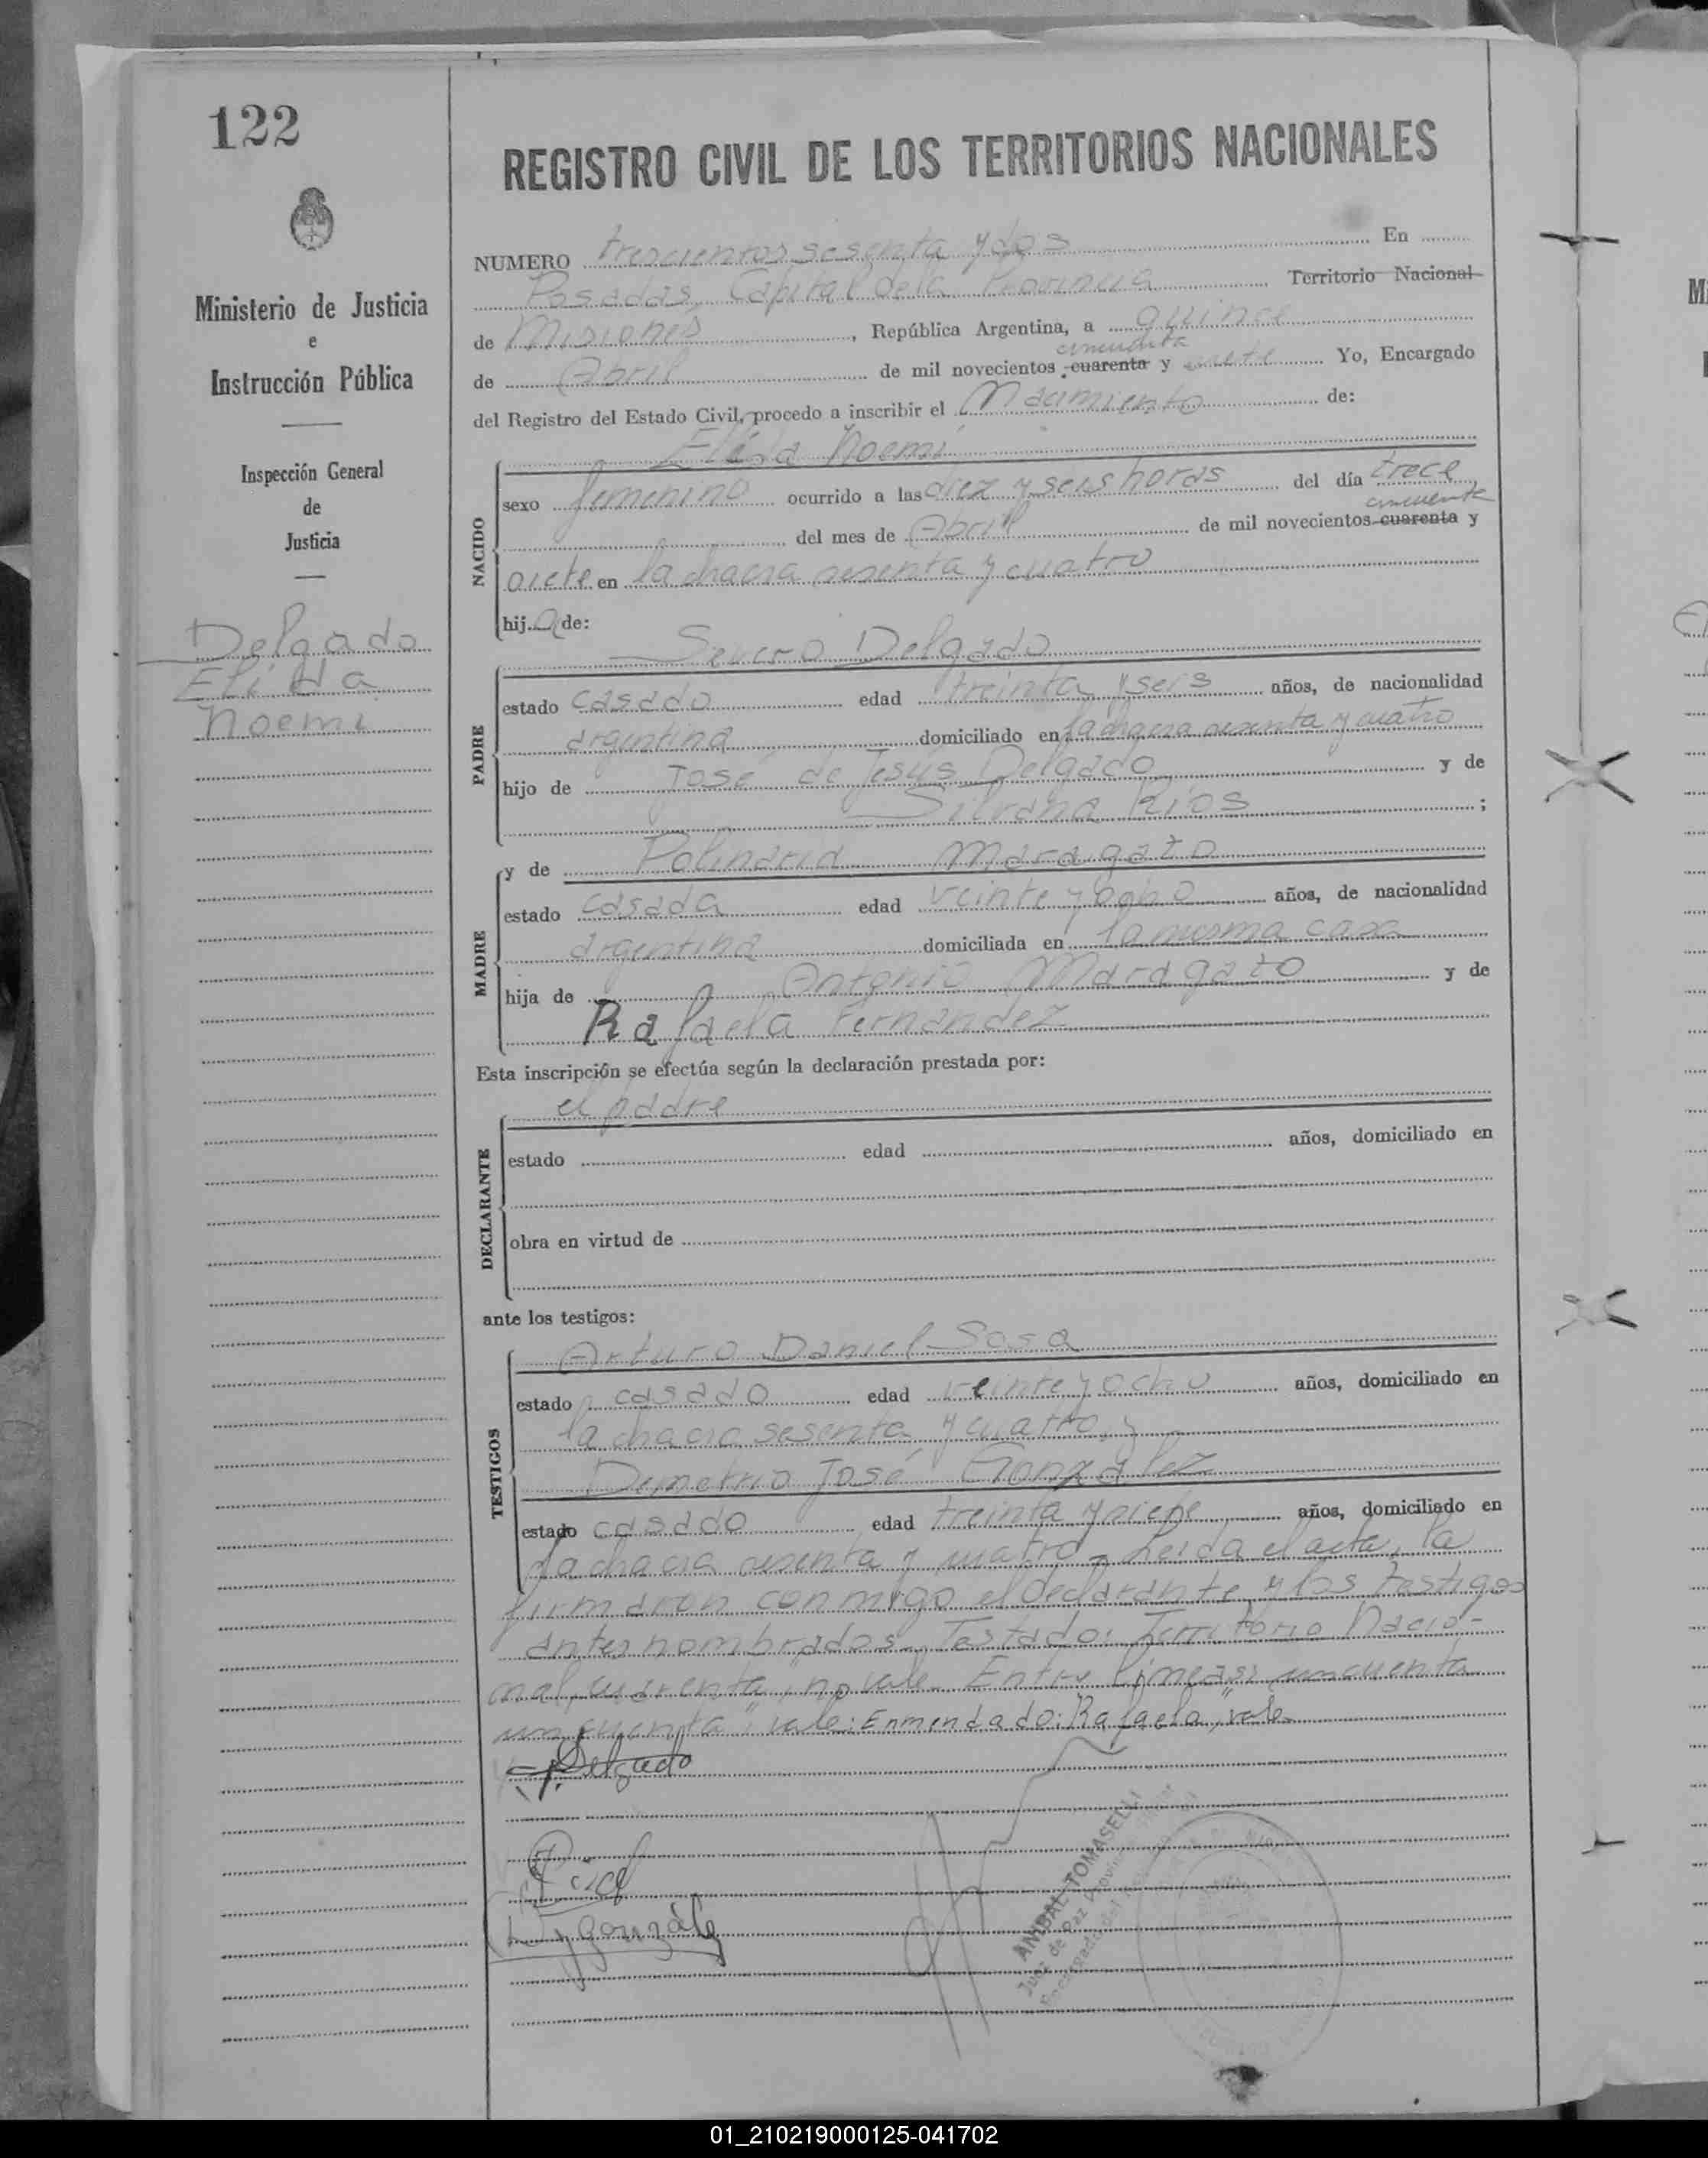 122
REGISTRO CIVIL DE LOS TERRITORIOS NACIONALES
Ministerio de Justicia
e
Instrucción Pública
Inspección General
de
Justicia
Delgado
Elida
Noemi
NUMERO trescientos sesenta y dos En
Posadas, Capital de la Provincia Territorio Nacional
de Misiones, República Argentina, a quince
cincuenta
de Abril de mil novecientos cuarenta y siete Yo, Encargado
del Registro del Estado Civil, procedo a inscribir el Nacimiento de:
Elida Noemi
NACIDO
sexo femenino ocurrido a las diez y seis horas del día trece
cincuenta
del mes de Abril de mil novecientos cuarenta y
siete en la chacra sesenta y cuatro
hija de:
Severo Delgado
PADRE
estado casado edad treinta y seis años, de nacionalidad
argentina domiciliado en la chacra sesenta y cuatro
hijo de José de Jesús Delgado y de
Silvana Rios ;
y de Polinaria Maragato
MADRE
estado casada edad veinte y ocho años, de nacionalidad
argentina domiciliada en la misma casa
hija de Antonio Maragato y de
Rafaela Fernández
Esta inscripción se efectúa según la declaración prestada por:
el padre
DECLARANTE
estado edad años, domiciliado en
obra en virtud de
ante los testigos:
Arturo Daniel Sosa
TESTIGOS
estado casado edad veinte y ocho años, domiciliado en
la chacra sesenta y cuatro y
Demetrio José Gonzalez
estado casado edad treinta y siete años, domiciliado en
la chacra sesenta y cuatro - Leida el acta, la
firmaron conmigo el declarante y los testigos
antes nombrados - Testado: Territorio Nacio-
nal, cuarenta, no vale - Entre lineas: cincuenta
cincuenta, vale: Enmendado: Rafaela, vale -
Delgado
González
ANIBAL TOMASELLI
Juez de Paz
Encargado del
01_210219000125-041702